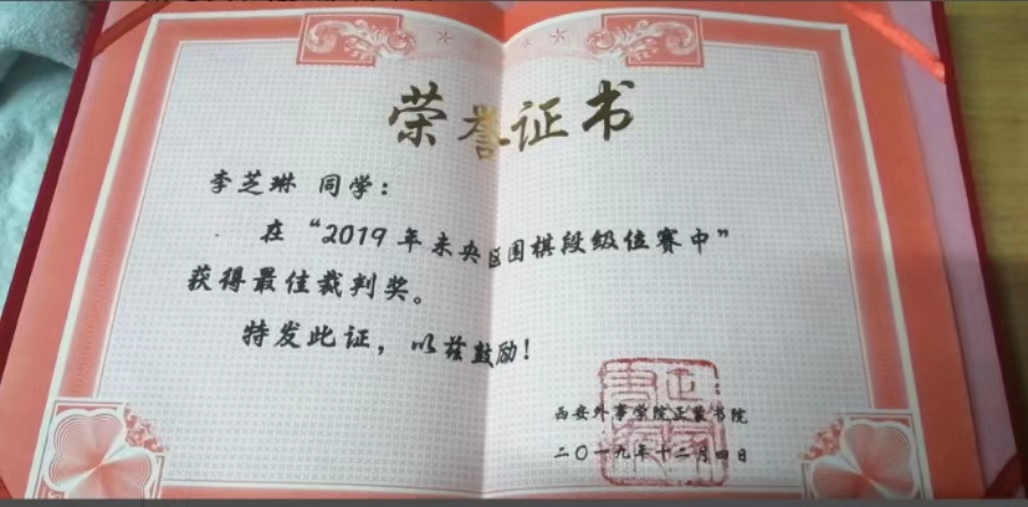 荣誉证书
李芝琳 同学：
在“2019年未央区围棋段级位赛中”
获得最佳裁判奖。
特发此证，以兹鼓励！
西安外事学院正蒙书院
二〇一九年十二月四日